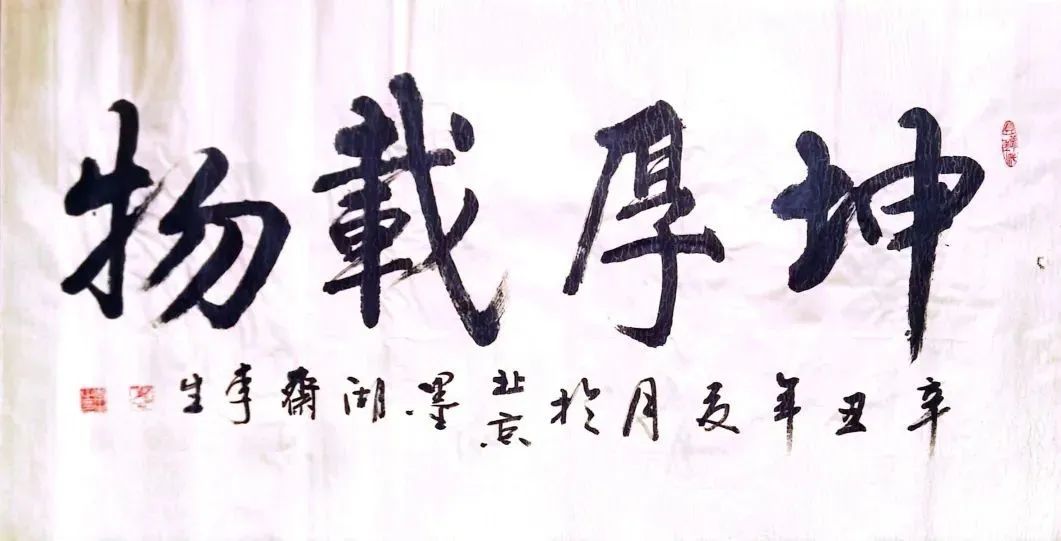 坤厚載物
辛丑年夏月於北京墨湖齋李生